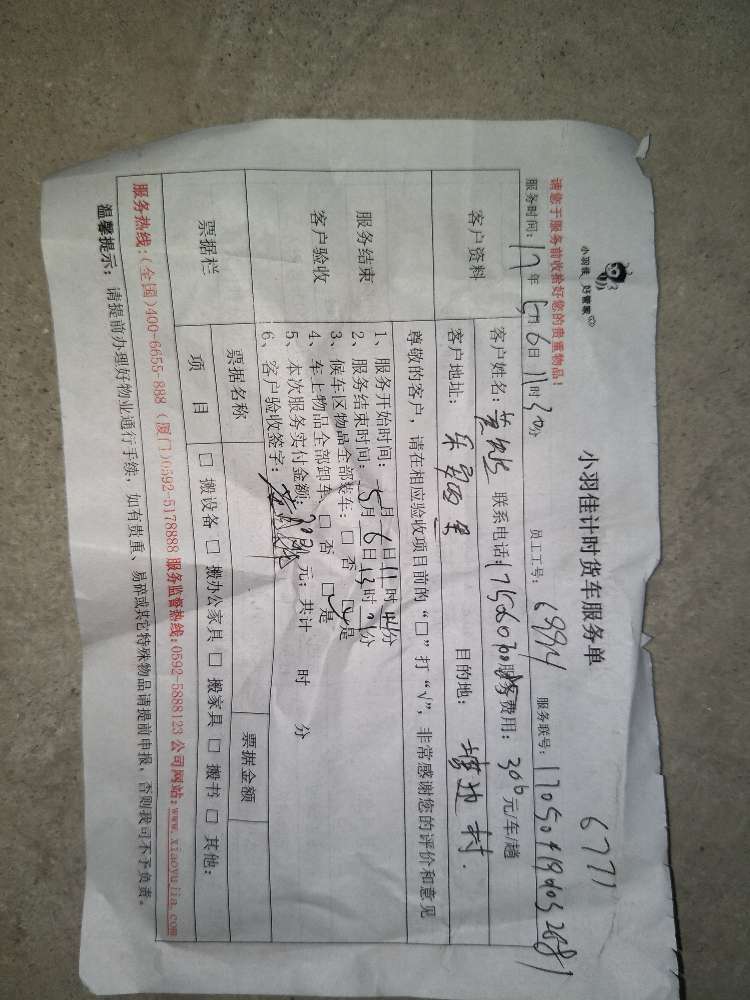 小羽佳 好管家
小羽佳计时货车服务单
6771
请您于服务前收拾好您的贵重物品!
服务时间: 17年5月6日11时30分 员工工号: 6994 服务联号:
客户资料
客户姓名: 联系电话: 服务费用: 300元/车/趟
客户地址: 目的地: 村
尊敬的客户,请在相应验收项目前的“□”打“√”,非常感谢您的评价和意见
服务结束
客户验收
1、服务开始时间: 5月6日11时分
2、服务结束时间: 5月6日13时分
3、候车区物品全部装车: □否 □是
4、车上物品全部卸车: □否 □是
5、本次服务实付金额: 元; 共计 时 分
6、客户验收签字:
票据栏
票据名称 票据金额
项 目 □搬设备 □搬办公家具 □搬家具 □搬书 □其他:
服务热线:(全国)400-6655-888 (厦门)0592-5178888 服务监督热线:0592-5888123 公司网站:www.xiaoyujia.com
温馨提示: 请提前办理好物业通行手续,如有贵重、易碎或其它特殊物品请提前申报,否则我司不予负责。